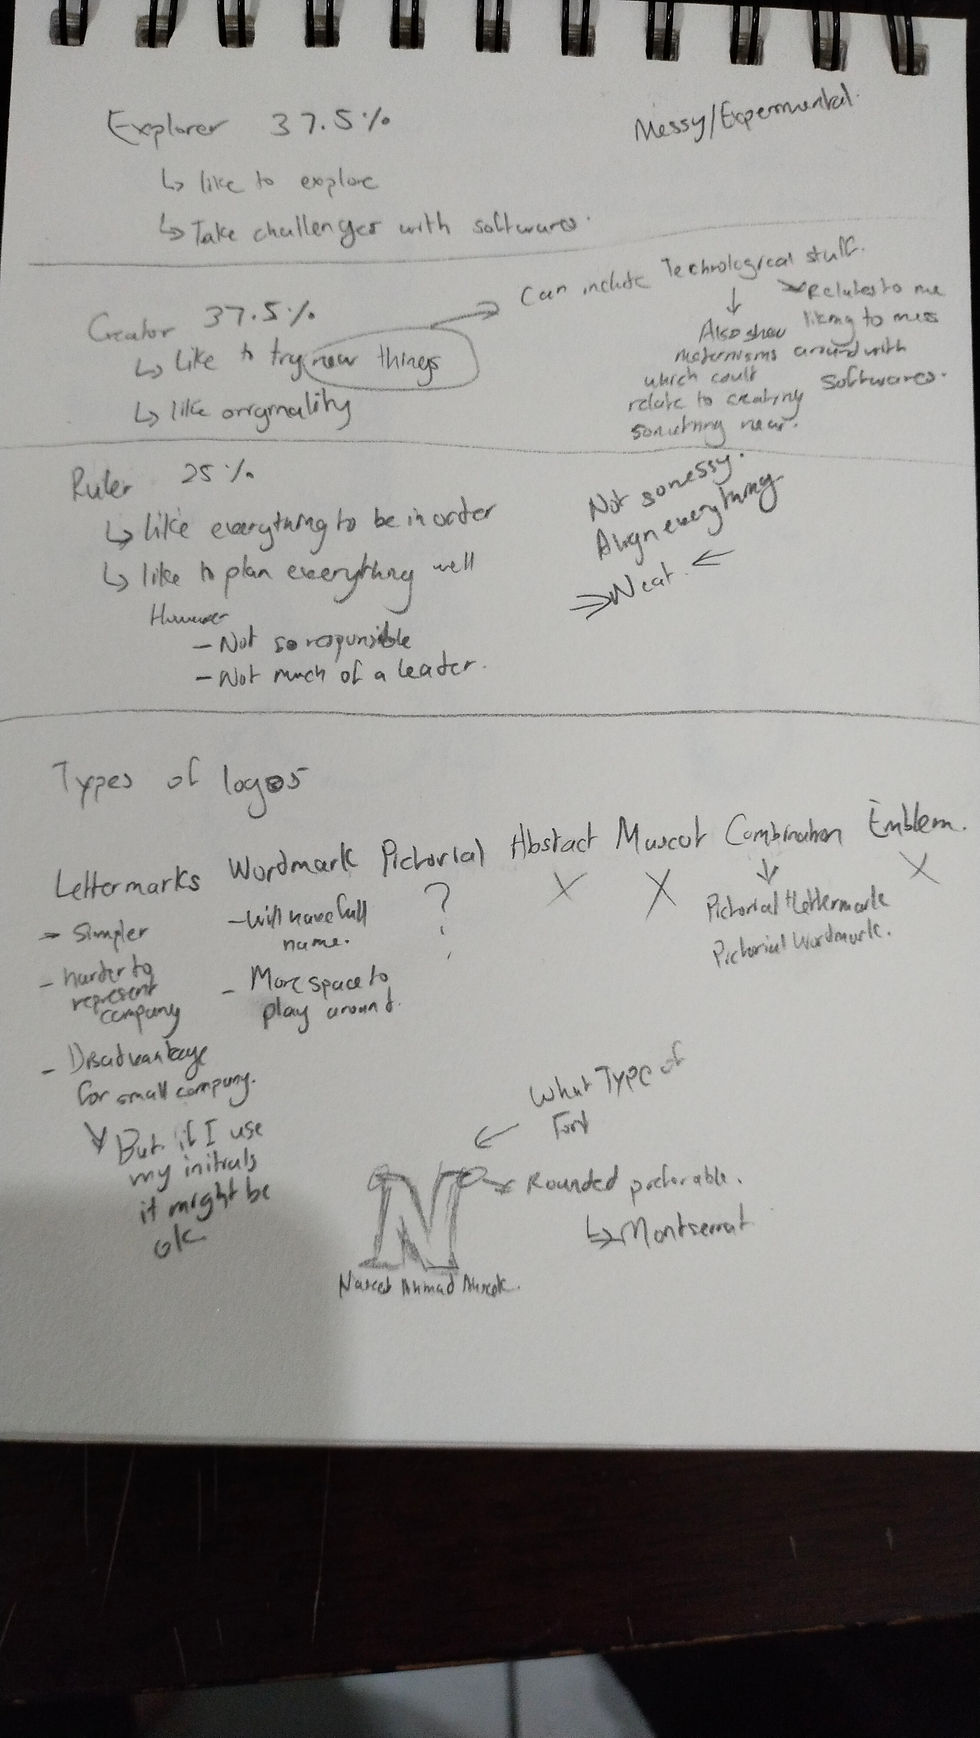 Explorer 37.5%
Messy/Expermental.
↳ like to explore
↳ Take challenges with softwares.
Creator 37.5%
↳ Like to try new things
↳ like originality
Can include Technological stuff.
Relates to me
liking to mess
around with
softwares.
Also show
which coult
relate to creating
something new.
Ruler 25%
↳ like everything to be in order
↳ like to plan everything well
However
- Not so responsible
- Not much of a leader.
Not so messy.
Align everything
Neat.
Types of logos
Lettermarks Wordmark Pictorial Abstact Muscot Combination Emblem.
- Simpler
- harder to
represent
company
- Disadvantage
for small company.
But if I use
my initials
it might be
ok
- Will have full
name.
- More space to
play around.
?
X
X
Pictorial + Lettermark
Pictorial Wordmark.
X
What Type of
Font
N
Rounded preferable.
↳ Montserrat
Ahmad